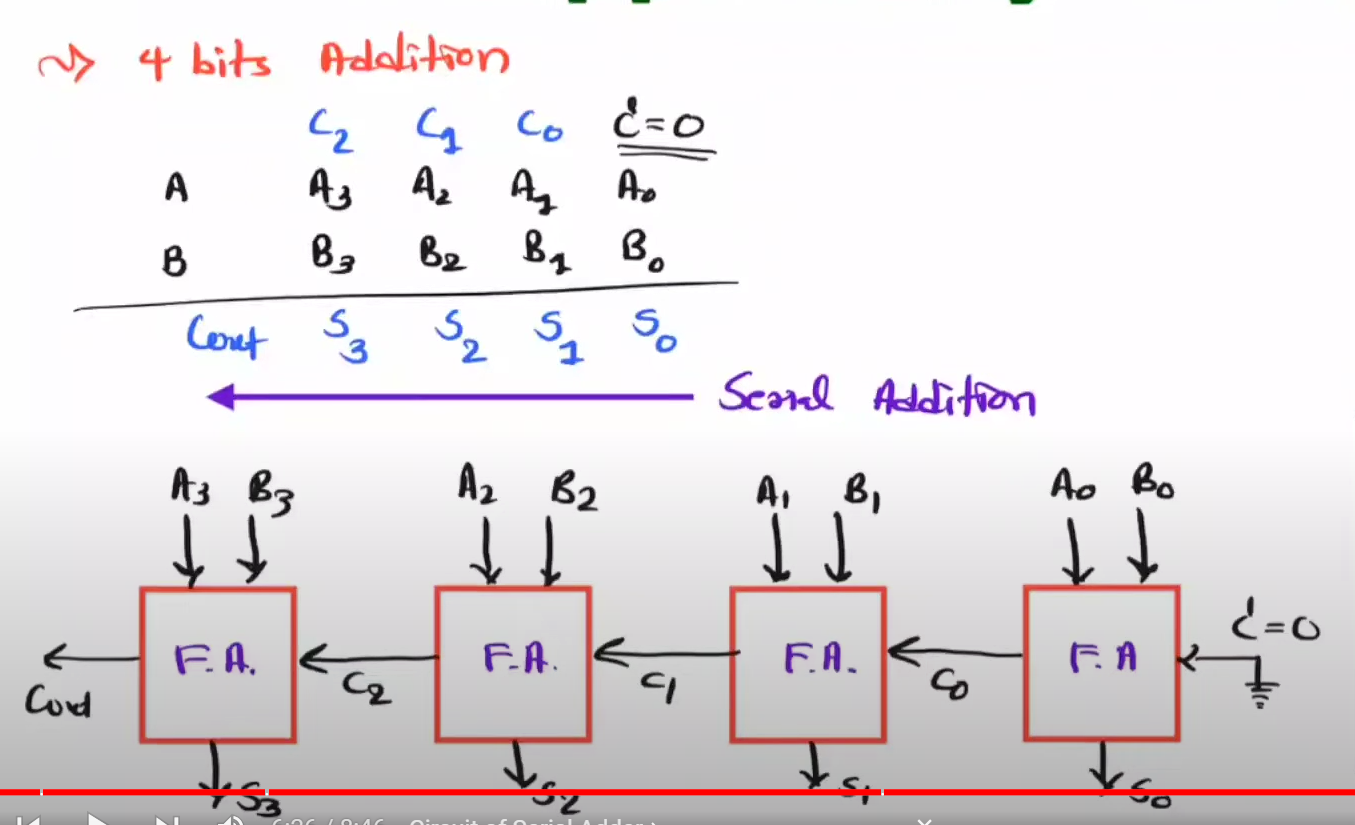 4 bits Addition
C2 C1 C0 C=0
A A3 A2 A1 A0
B B3 B2 B1 B0
Cout S3 S2 S1 S0
Serial Addition
A3 B3 A2 B2 A1 B1 A0 B0
C=0
F.A. F.A. F.A. F.A
Cout C2 C1 C0
S3 S2 S1 S0
6:26 / 8:46 Circuit of Serial Adder